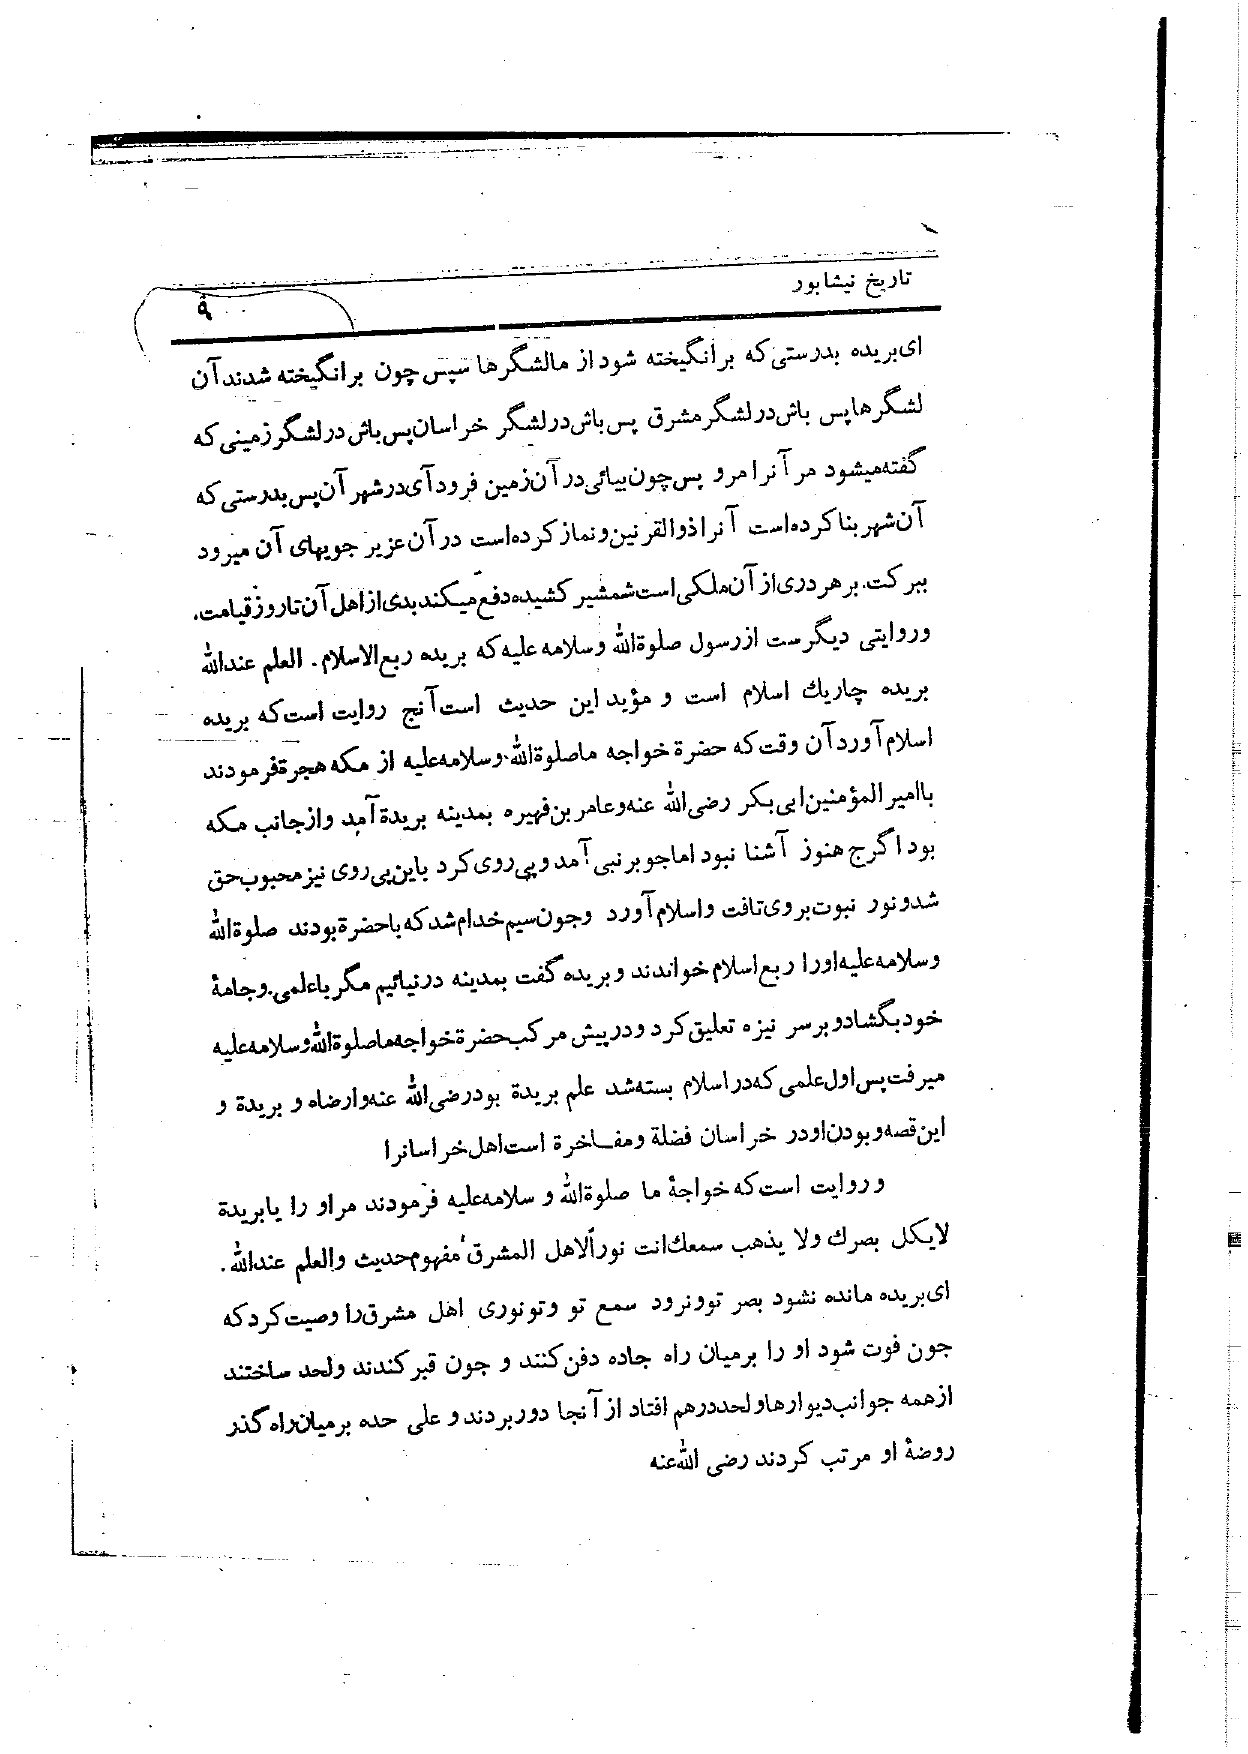 تاریخ نیشابور
۹
ای بریده بدرستی که برانگیخته شود از مالشگرها سپس چون برانگیخته شدند آن
لشگرها پس باش در لشگر مشرق پس باش در لشگر خراسان پس باش در لشگر زمینی که
گفته میشود مر آنرا مرو پس چون بیائی در آن زمین فرود آی در شهر آن پس بدرستی که
آن شهر بنا کرده است آنرا ذوالقرنین و نماز کرده است در آن عزیر جویهای آن میرود
ببرکت. بر هر دری از آن ملکی است شمشیر کشیده دفع میکند بدی از اهل آن تا روز قیامت.
وروایتی دیگرست از رسول صلوة الله وسلامه علیه که بریده ربع الاسلام. العلم عندالله
بریده چاریك اسلام است و مؤید این حدیث است آنچ روایت است که بریده
اسلام آورد آن وقت که حضرة خواجه ما صلوة الله وسلامه علیه از مکه هجرة فرمودند
با امیر المؤمنین ابی بکر رضی الله عنه و عامر بن فهیره بمدینه بریدة آمد و از جانب مکه
بود اگرچ هنوز آشنا نبود اما جو بر نبی آمد و پی روی کرد باین پی روی نیز محبوب حق
شد و نور نبوت بروی تافت و اسلام آورد وجون سیم خدام شد که با حضرة بودند صلوة الله
وسلامه علیه اورا ربع اسلام خواندند و بریده گفت بمدینه در نیائیم مگر با علمی. وجامۀ
خود بگشاد و بر سر نیزه تعلیق کرد و در پیش مرکب حضرة خواجه ما صلوة الله وسلامه علیه
میرفت پس اول علمی که در اسلام بسته شد علم بریدة بود رضی الله عنه وارضاه و بریدة و
این قصه و بودن او در خراسان فضلة ومفاخرة است اهل خراسانرا
و روایت است که خواجۀ ما صلوة الله و سلامه علیه فرمودند مر او را یا بریدة
لایکل بصرك ولا یذهب سمعك انت نوراً لاهل المشرق، مفهوم حدیث والعلم عندالله.
ای بریده مانده نشود بصر تو ونرود سمع تو وتو نوری اهل مشرق را وصیت کرد که
جون فوت شود او را بر میان راه جاده دفن کنند و جون قبر کندند ولحد ساختند
از همه جوانب دیوارها ولحد درهم افتاد از آنجا دور بردند و علی حده بر میان راه گذر
روضۀ او مرتب کردند رضی الله عنه